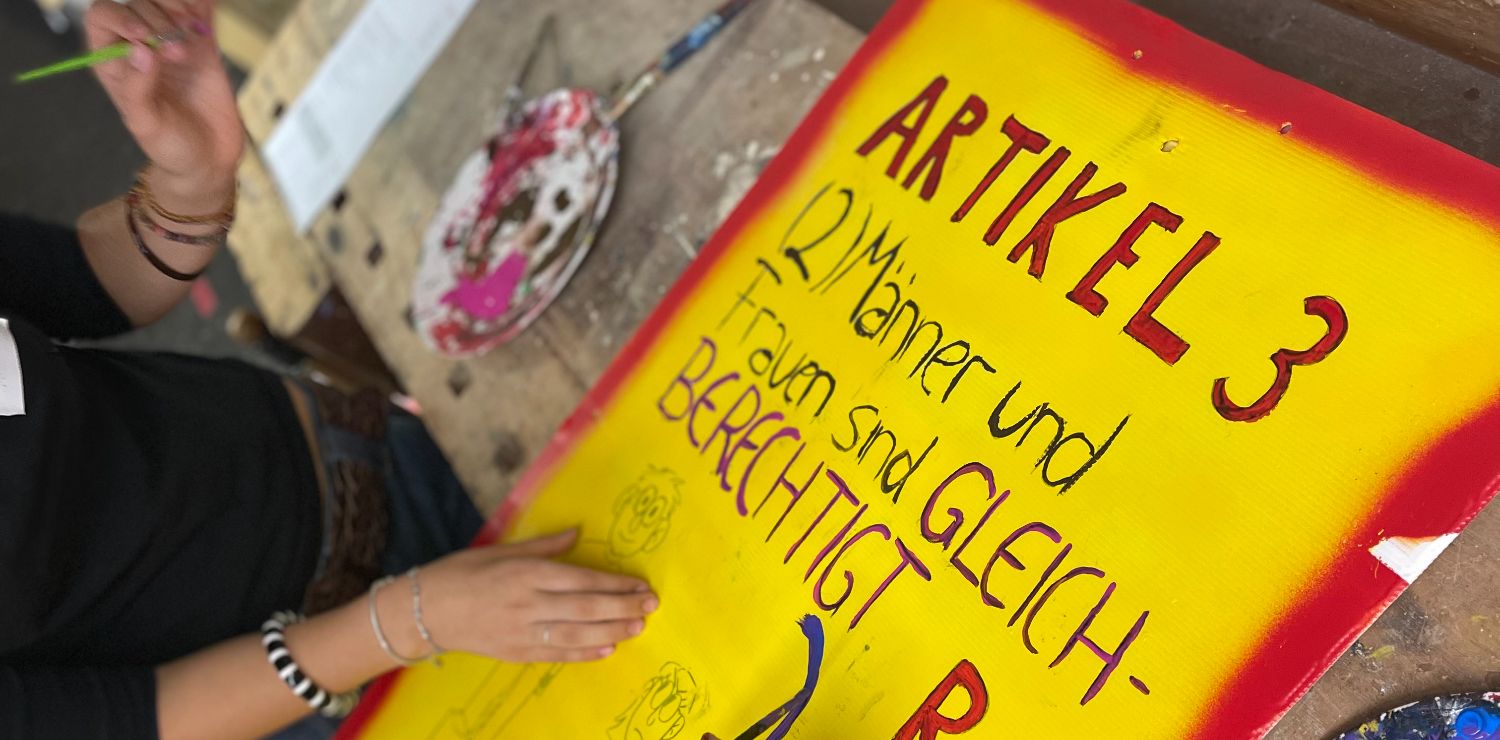 ARTIKEL 3
(2) Männer und
Frauen sind GLEICH-
BERECHTIGT